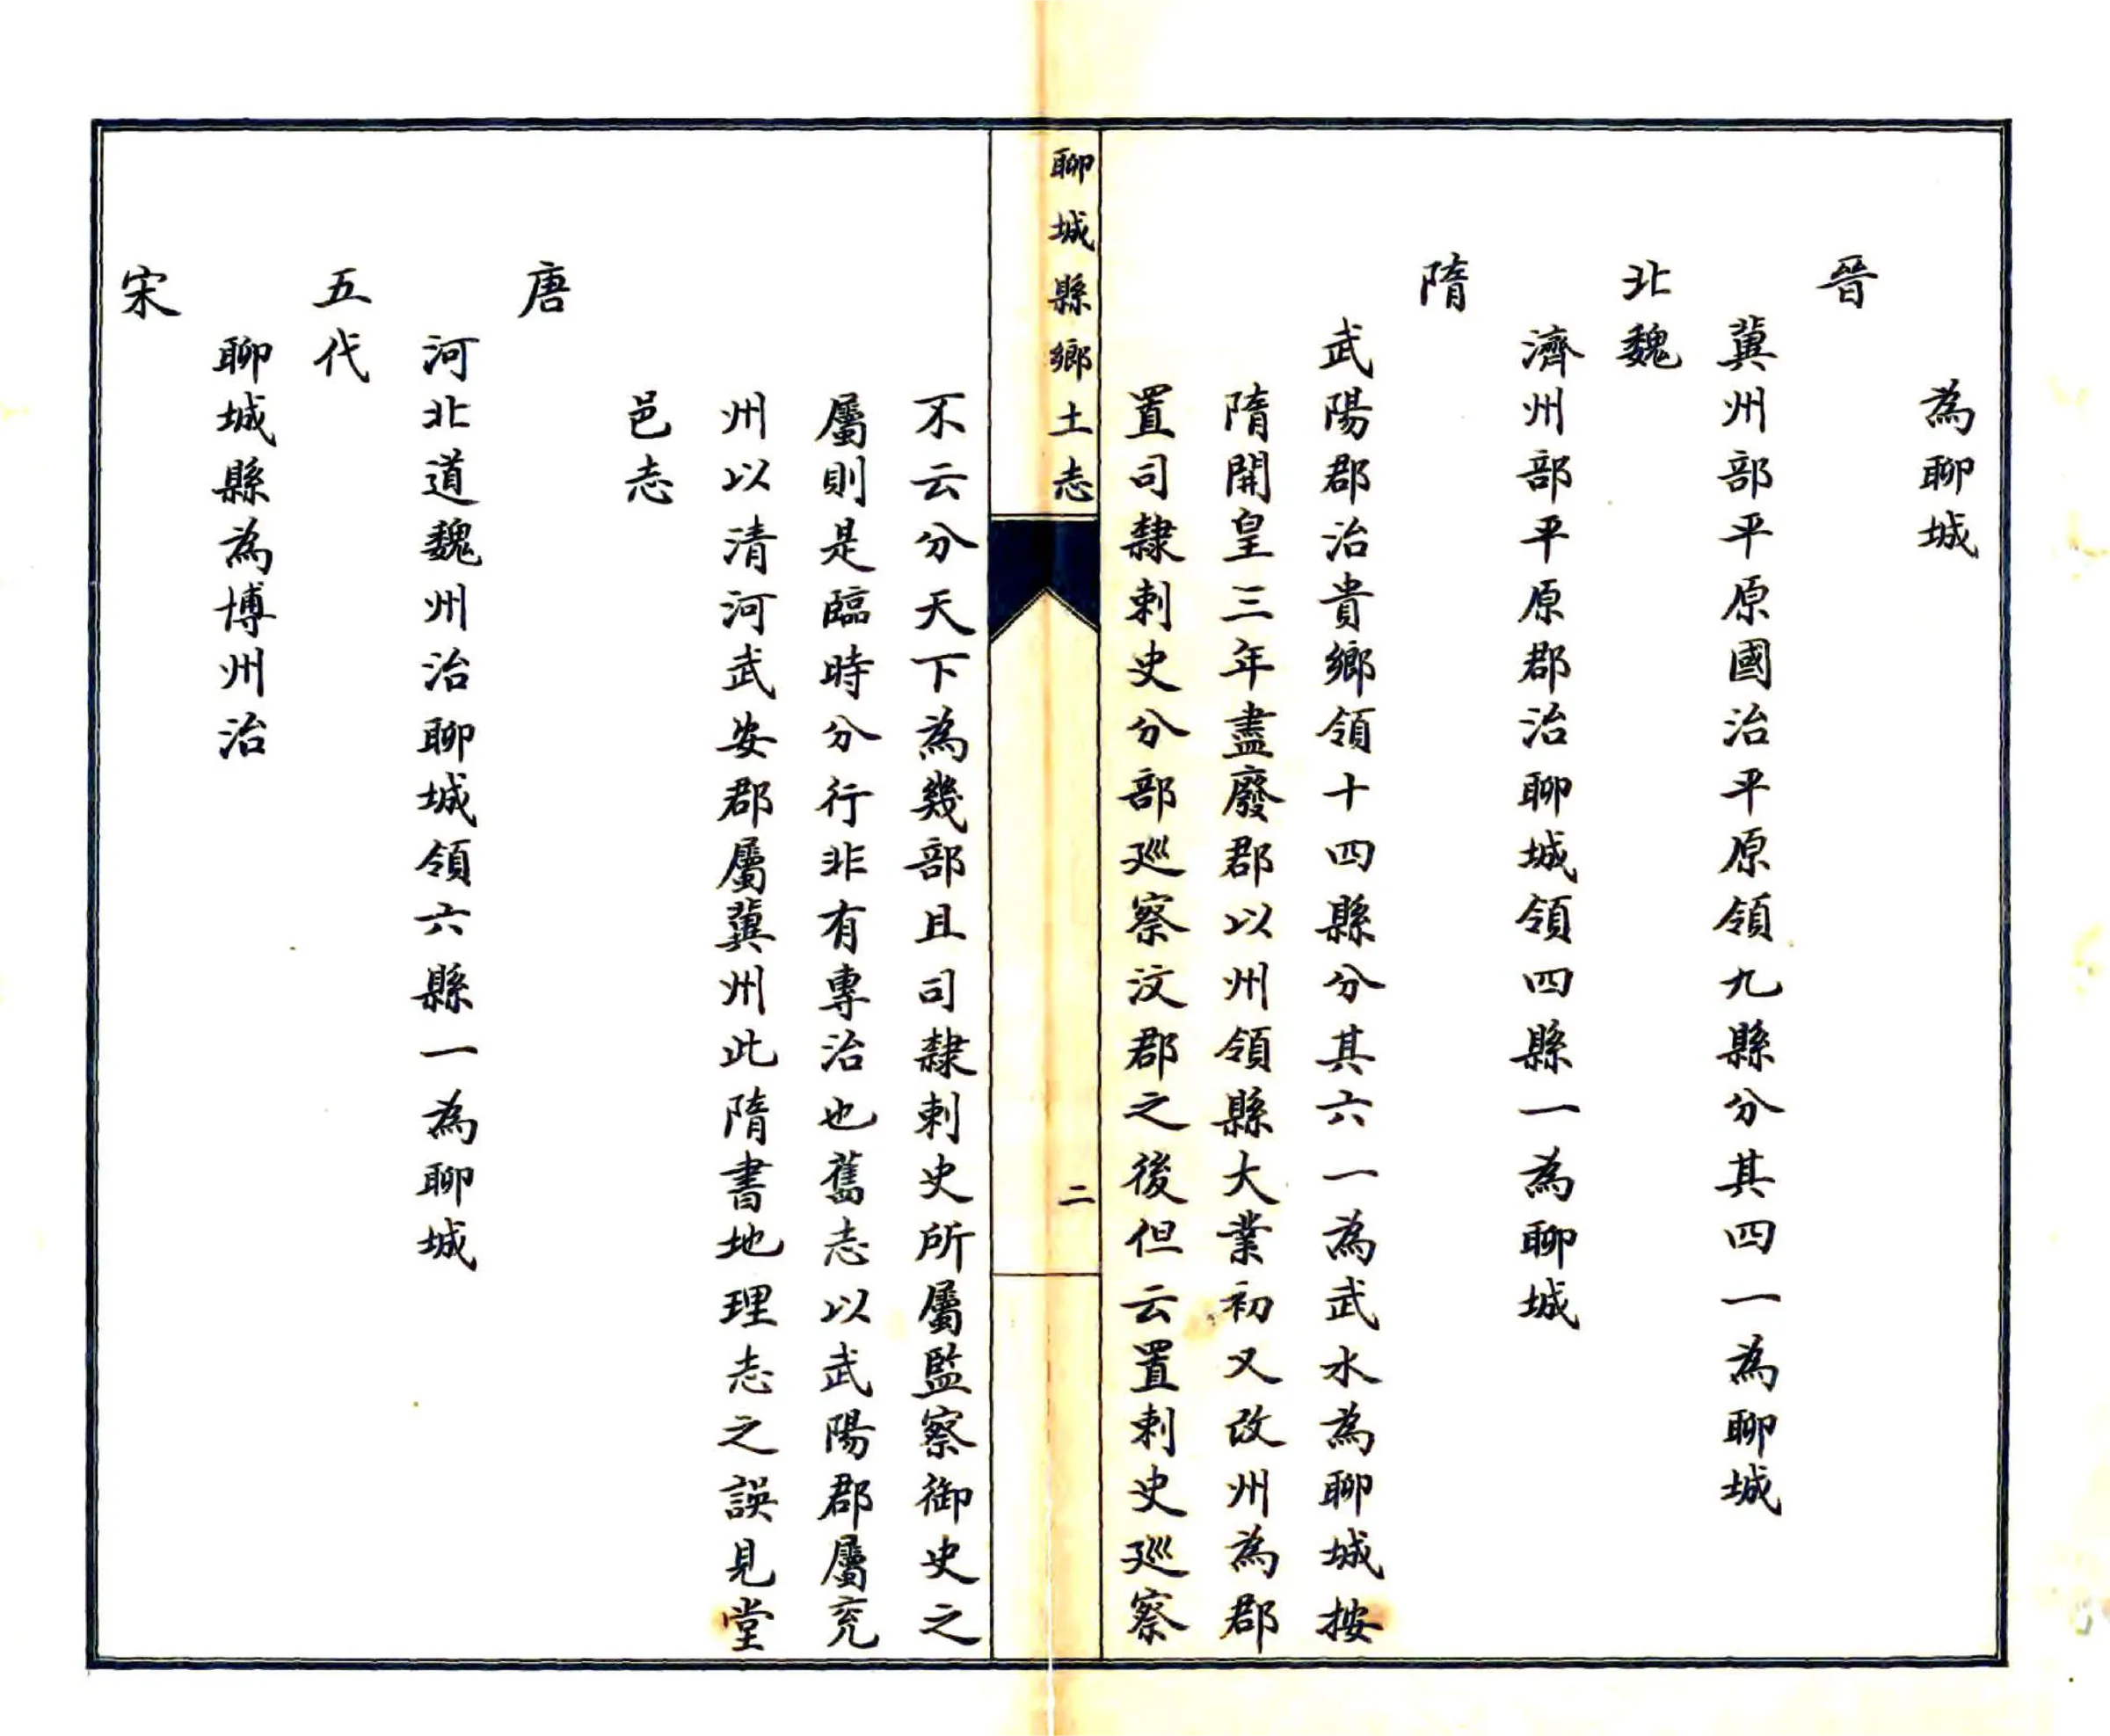 為聊城
晉
冀州部平原國治平原領九縣分其四一為聊城
北魏
濟州部平原郡治聊城領四縣一為聊城
隋
武陽郡治貴鄉領十四縣分其六一為武水為聊城按
隋開皇三年盡廢郡以州領縣大業初又改州為郡
置司隸刺史分部巡察汶郡之後但云置刺史巡察
聊城縣鄉土志
二
不云分天下為幾部且司隸刺史所屬監察御史之
屬則是臨時分行非有專治也舊志以武陽郡屬兗
州以清河武安郡屬冀州此隋書地理志之誤見堂
邑志
唐
河北道魏州治聊城領六縣一為聊城
五代
聊城縣為博州治
宋